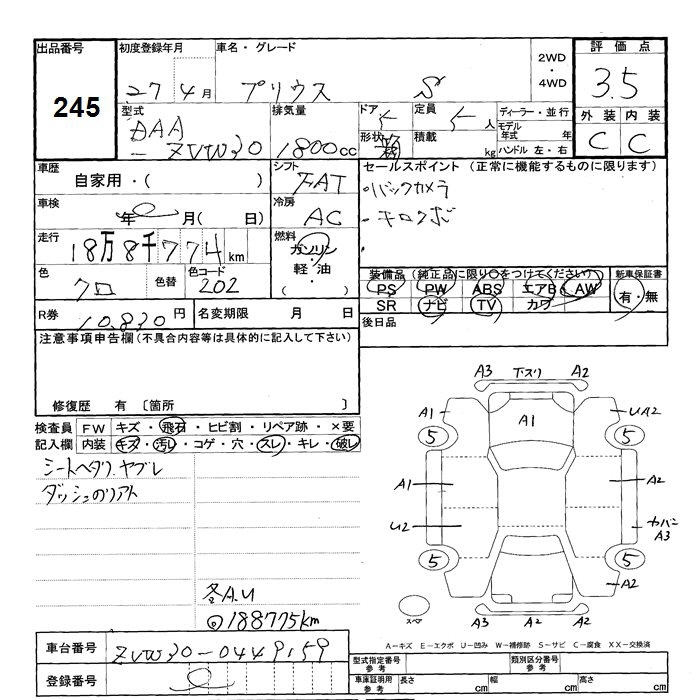 出品番号 初度登録年月 車名・グレード 2WD・4WD 評価点
245 27 4月 プリウス S 3.5
型式 排気量 ドア 定員 ディーラー・並行 外装 内装
DAA-ZVW30 1800cc 5 5人 モデル年式 年 C C
形状 積載 kg ハンドル 左・右
車歴 シフト セールスポイント (正常に機能するものに限ります)
自家用・( ) FAT ・バックカメラ
車検 冷房
年 月( 日) AC
走行 燃料
18万8千774km ガソリン・軽油・( )
色 色替 色コード 装備品 (純正品に限り○をつけてください) 新車保証書
クロ 202 PS PW ABS エアB AW 有・無
SR ナビ TV カワ
R券 10.830円 名変期限 月 日 後日品
注意事項申告欄 (不具合内容等は具体的に記入して下さい)
修復歴 有 〔箇所 〕
検査員 FW キズ・飛石・ヒビ割・リペア跡・×要
記入欄 内装 キズ・汚レ・コゲ・穴・スレ・キレ・破レ
シートヘタリ.ヤブレ
ダッシュのリアト
冬A.U
◎188775km
A3 下スリ A2
A1 A1 UA2
5 5
A1 A2
U2 A3
5 5
A2
スペア A3 A2 A2
A-キズ E-エクボ U-凹み W-補修跡 S-サビ C-腐食 XX-交換済
車台番号 ZVW30-0449159
登録番号
型式指定番号 参考 類別区分番号 参考
車庫証明用 参考 長さ cm 幅 cm 高さ cm